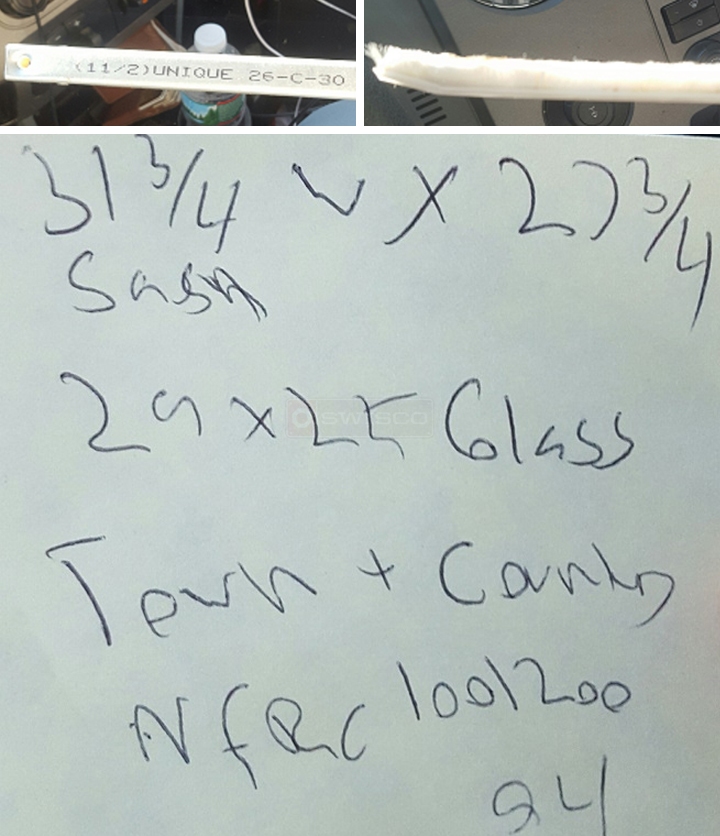 (11/2)UNIQUE 26-C-30
31 3/4 W X 27 3/4
Sash
29 x 25 Glass
SWISCO
Town + Country
NFRC 1001200
94